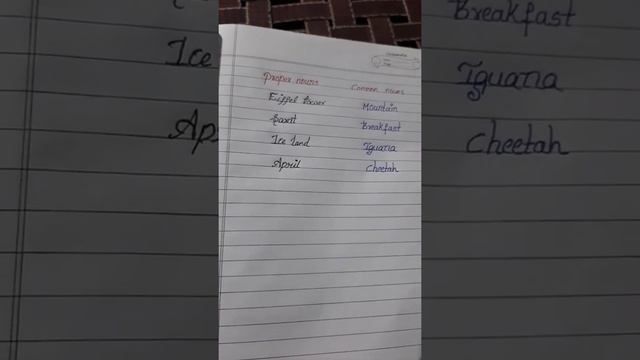 Proper nouns Common nouns
Eiffel tower Mountain
Breakfast
Ice land Iguana
April Cheetah
Breakfast
Iguana
Cheetah
Ice
Ap